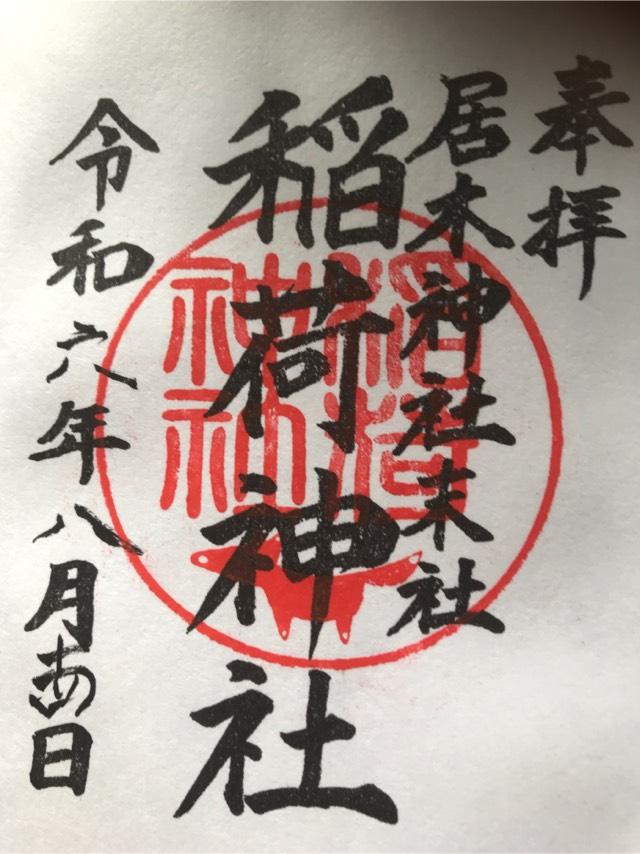 奉拝
居木神社末社
稲荷神社
令和六年八月日
稲荷
神社